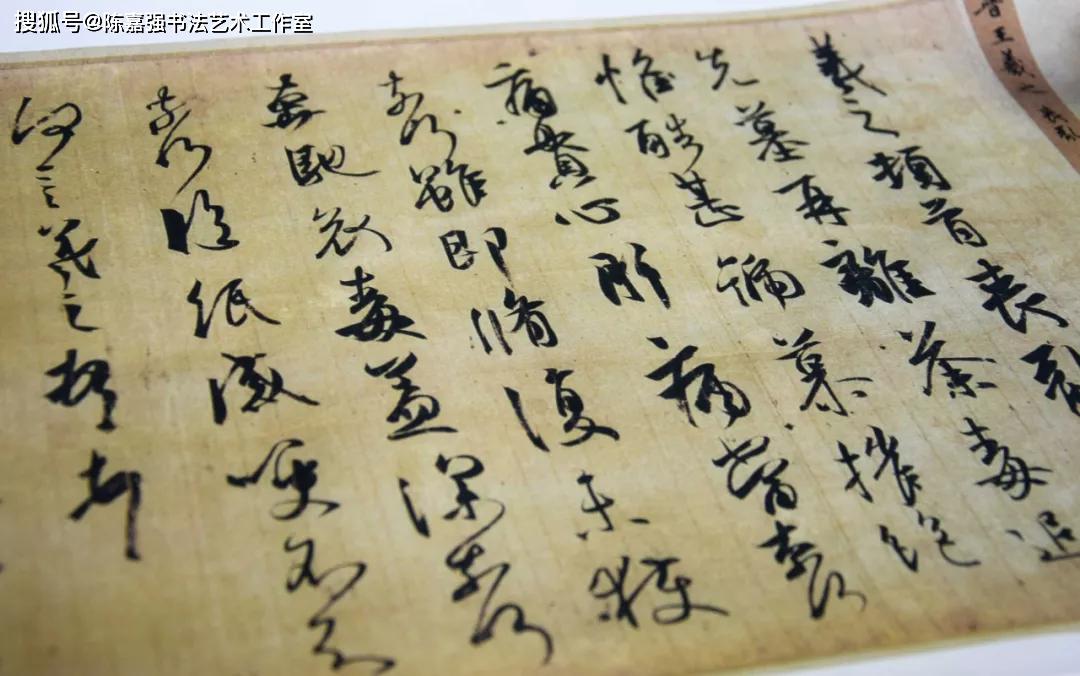 搜狐号@陈嘉强书法艺术工作室
晋王羲之喪亂
羲之頓首喪亂
先墓再離荼毒追
惟酷甚號慕摧絕
痛貫心肝痛當奈何
奈何雖即脩復未獲
奔馳哀毒益深奈何
奈何臨紙感哽不知
何言羲之頓首頓首